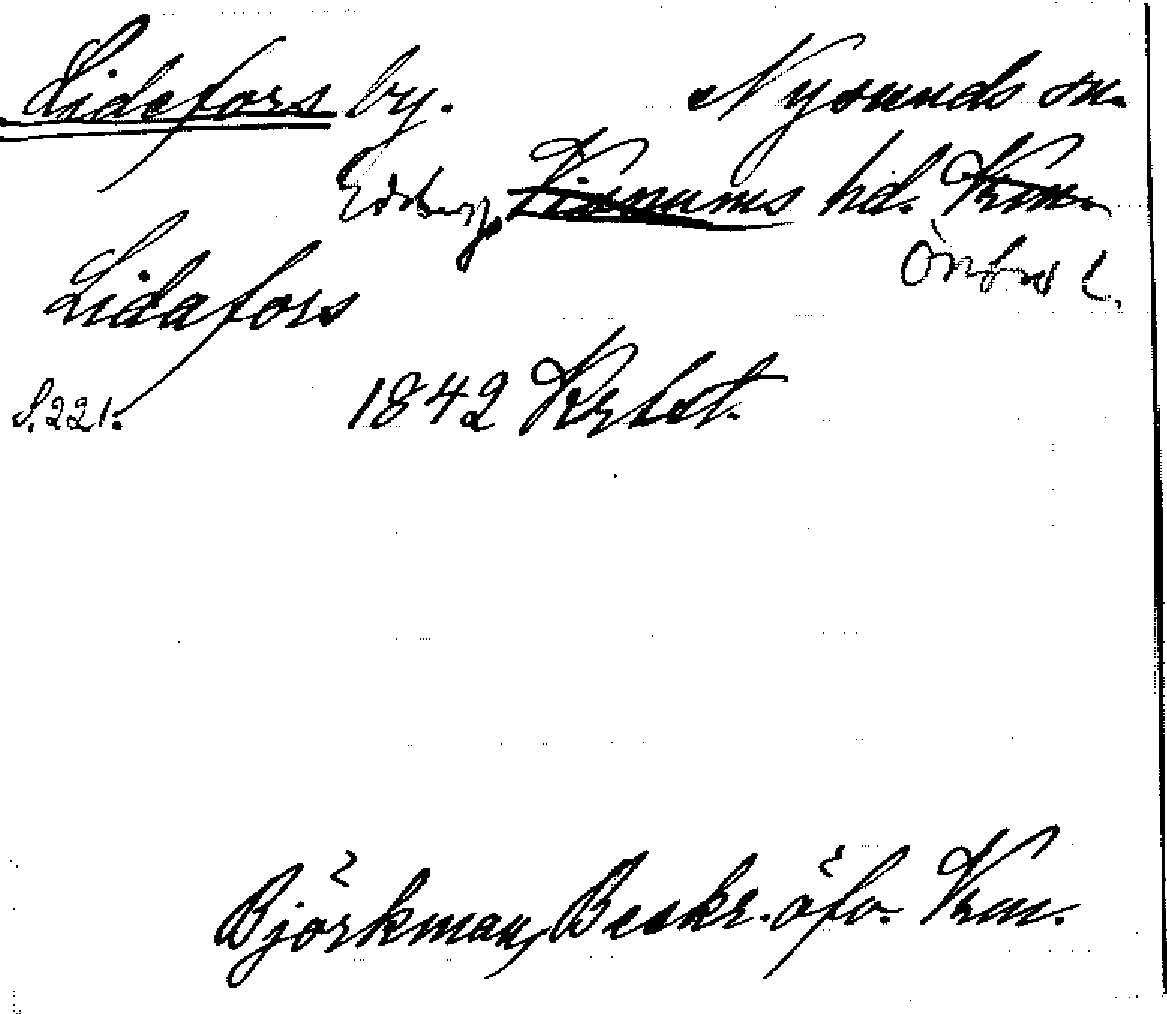 Lidefors by. Nysunds sn.
Edsbergs Visnums hd. Vrm.
Örebro l.
Lidafors
S. 221. 1842
Björkman, Beskr. öfv. Vrm.